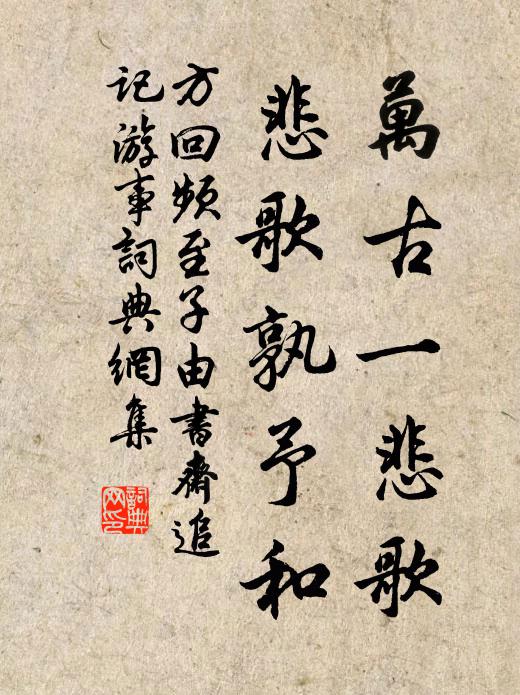 萬古一悲歌
悲歌孰予和
方回頻至子由書齋追
記游事詞典網集
詞典
网印